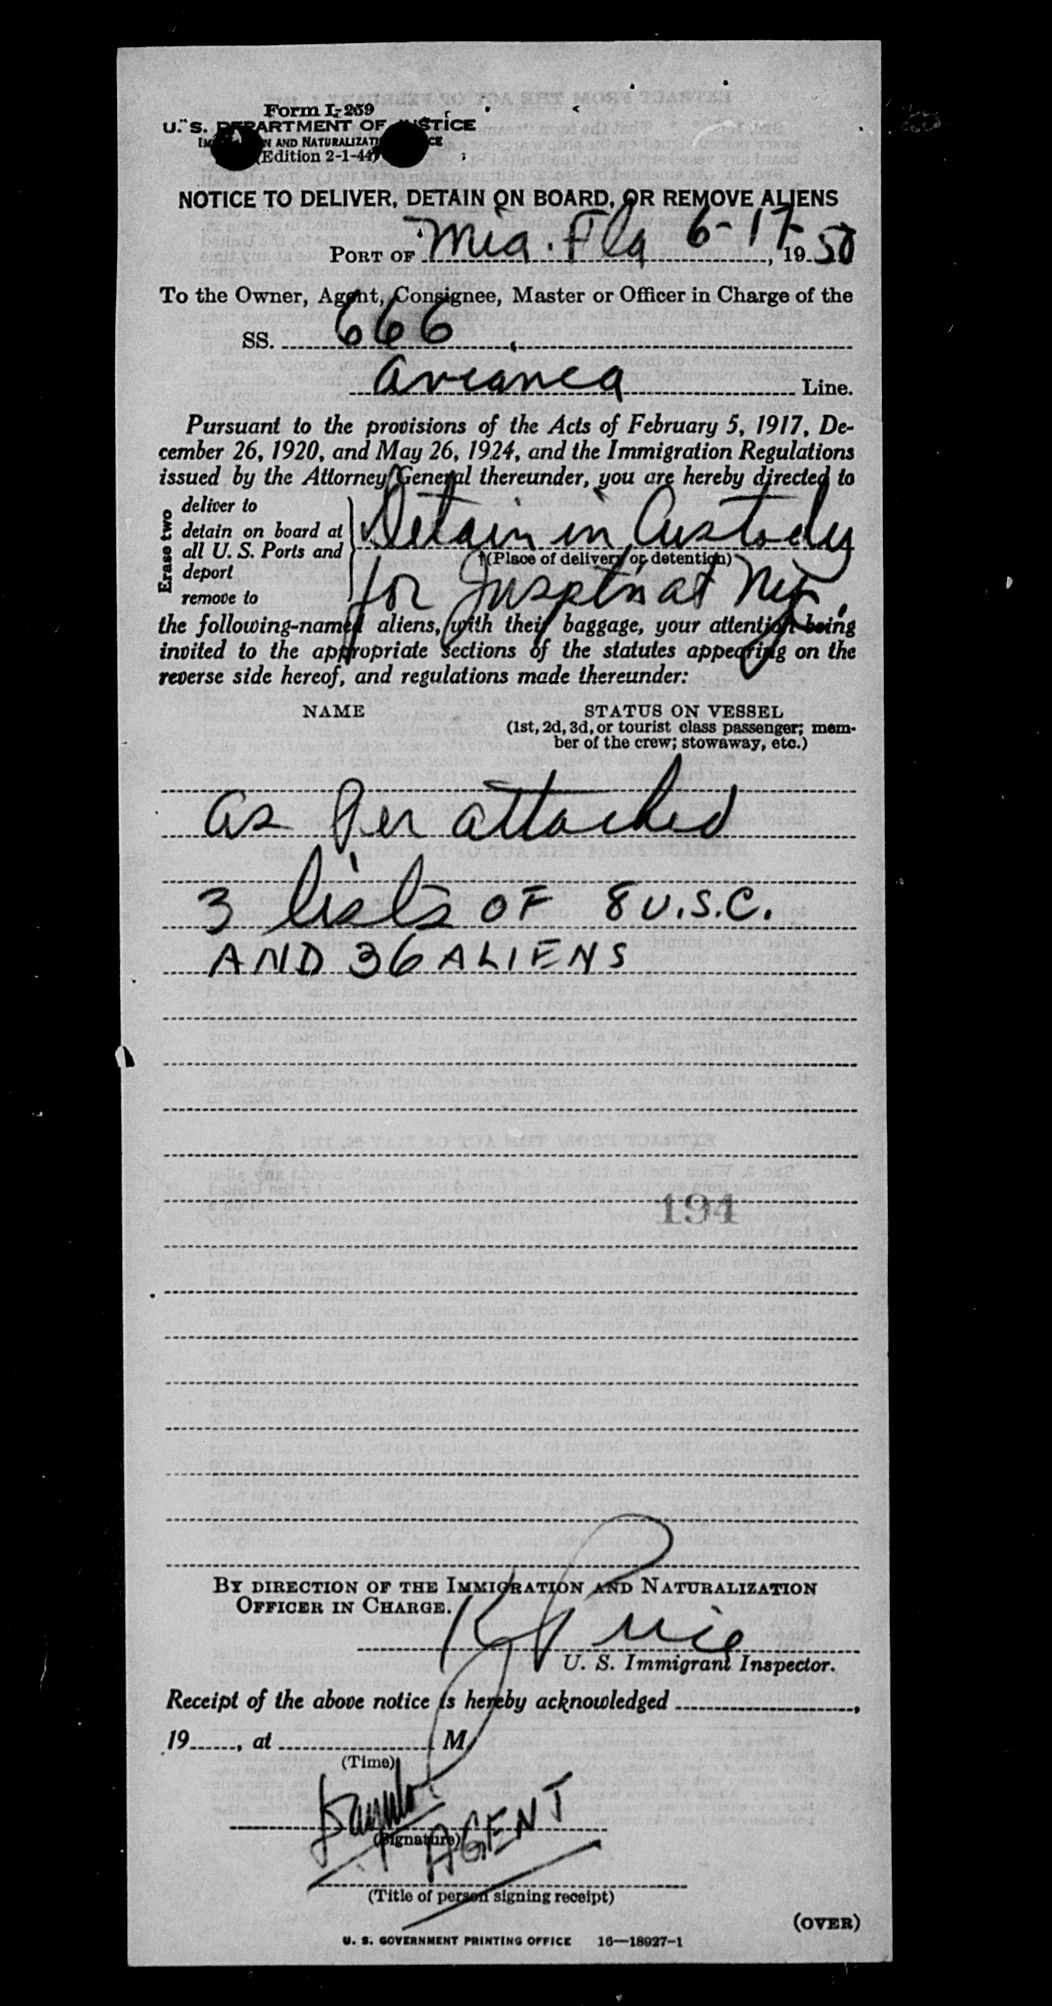 Form I-259
U. S. DEPARTMENT OF JUSTICE
IMMIGRATION AND NATURALIZATION SERVICE
(Edition 2-1-44)
NOTICE TO DELIVER, DETAIN ON BOARD, OR REMOVE ALIENS
PORT OF Mia. Fla 6-17-, 1950
To the Owner, Agent, Consignee, Master or Officer in Charge of the
SS. 666
Avianca Line.
Pursuant to the provisions of the Acts of February 5, 1917, De-
cember 26, 1920, and May 26, 1924, and the Immigration Regulations
issued by the Attorney General thereunder, you are hereby directed to
Erase two
deliver to
detain on board at
all U. S. Ports and
deport
remove to
Detain in Custody
(Place of delivery or detention)
for Insptn at NYC.
the following-named aliens, with their baggage, your attention being
invited to the appropriate sections of the statutes appearing on the
reverse side hereof, and regulations made thereunder:
NAME
STATUS ON VESSEL
(1st, 2d, 3d, or tourist class passenger; mem-
ber of the crew; stowaway, etc.)
as per attached
3 lists OF 8 U.S.C.
AND 36 ALIENS
194
BY DIRECTION OF THE IMMIGRATION AND NATURALIZATION
OFFICER IN CHARGE.
U. S. Immigrant Inspector.
Receipt of the above notice is hereby acknowledged ,
19 , at M
(Time)
AGENT
(Signature)
(Title of person signing receipt)
(OVER)
U. S. GOVERNMENT PRINTING OFFICE 16—18927-1